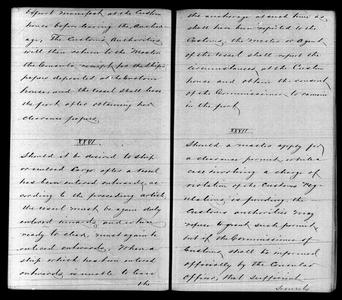 Export Manifest at the Custom
house before leaving the Anchor-
age, The Customs Authorities
will then return to the Master
the Consul's receipt for the Ship's
papers deposited at the Custom
house and the vessel shall leave
the port after obtaining her
clearance papers.
XXVI.
Should it be desired to ship
or unload Cargo after a vessel
has been entered outwards, ac-
cording to the preceding article
the vessel must be again duly
entered inwards, and when
ready to clear, must again be
entered outwards. When a
ship which has been entered
outwards, is unable to leave
the
the anchorage at such time as
shall have been reported to the
Customs, the Master or Agent
of the vessel shall report the
circumstances at the Custom
house and obtain the consent
of the Commissioner, to remain
in the port.
XXVII.
Should a master apply for
a clearance permit, while a
case involving a charge of
violation of the Customs Reg-
ulations is pending, the
Customs authorities may
refuse to grant such permit,
but if the Commissioner of
Customs shall be informed
officially by the Consular
officer, that sufficient